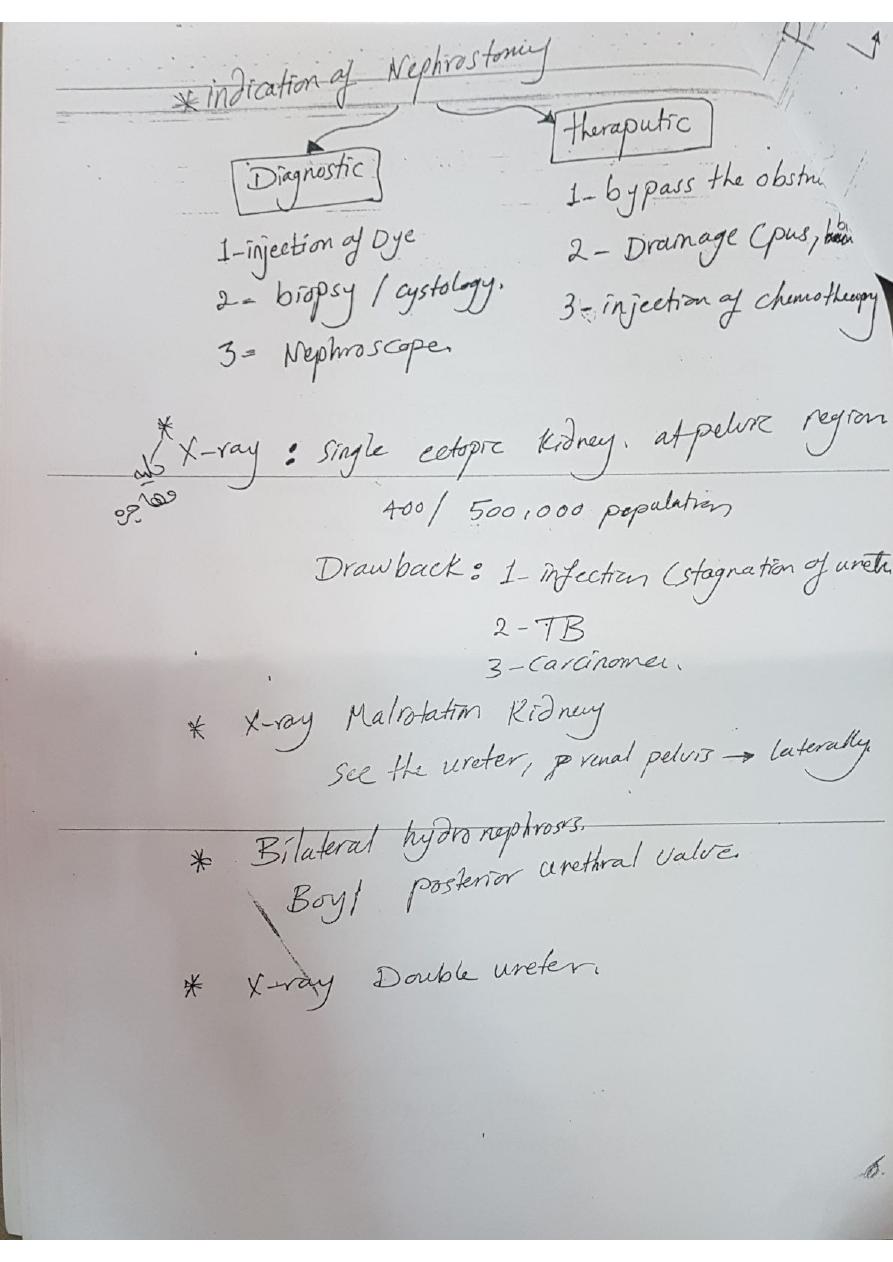 * indication of Nephrostomy
Diagnostic
1- injection of Dye
2- biopsy / cystology.
3= Nephroscope.
theraputic
1- bypass the obstru
2- Drainage (pus,
3- injection of chemotherapy
* X-ray : single ectopic kidney. at pelvic region
كلية
مهاجرة
400/ 500,000 population
Drawback: 1- infection (stagnation of ureth
2- TB
3- Carcinoma.
* X-ray Malrotation Kidney
see the ureter, renal pelvis → laterally.
* Bilateral hydronephrosis.
Boy/ posterior urethral valve.
* X-ray Double ureter.
6.